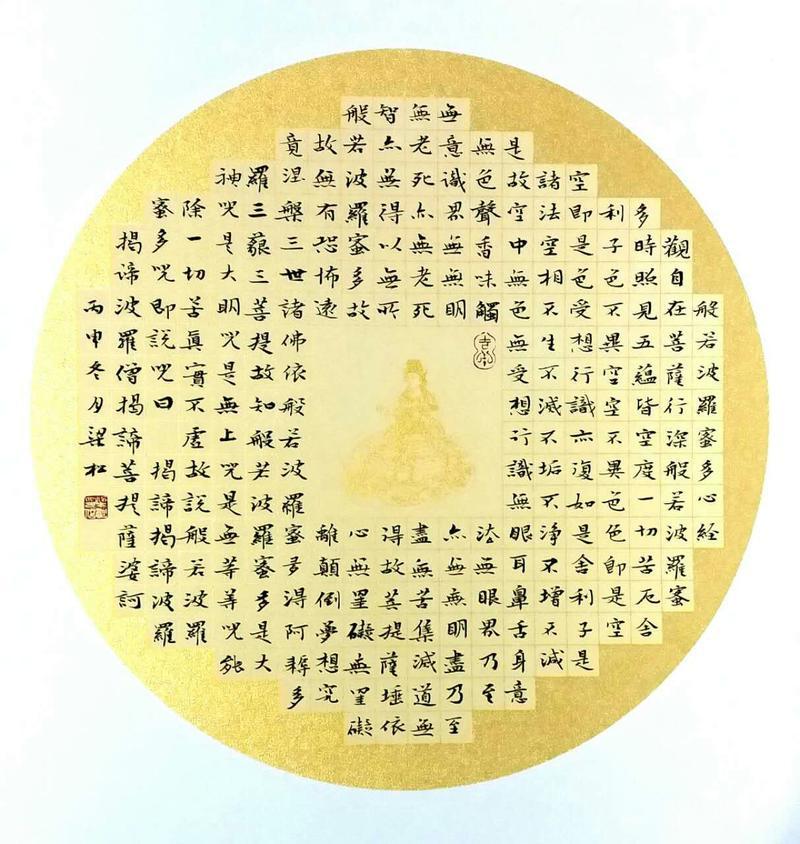 般若波羅蜜多心経
觀自在菩薩行深般若波羅蜜
多時照見五蘊皆空度一切苦厄舍
利子色不異空空不異色色即是空
空即是色受想行識亦復如是舍利子是
諸法空相不生不滅不垢不淨不增不減
是故空中無色無受想行識無眼耳鼻舌身意
無色聲香味觸
法無眼界乃至
無意識界無無明
亦無無明盡乃至
無老死亦無老死
盡無苦集滅道無
智亦無得以無所
得故菩提薩埵依
般若波羅蜜多故
心無罣礙無罣礙
故無有恐怖遠
離顛倒夢想究
竟涅槃三世諸佛依般若波羅蜜多得阿耨多
羅三藐三菩提故知般若波羅蜜多是大
神呪是大明呪是無上呪是無等等呪能
除一切苦真實不虛故說般若波羅
蜜多呪即說呪曰 揭諦揭諦波羅
揭諦波羅僧揭諦菩提薩婆訶
丙申冬月梁松